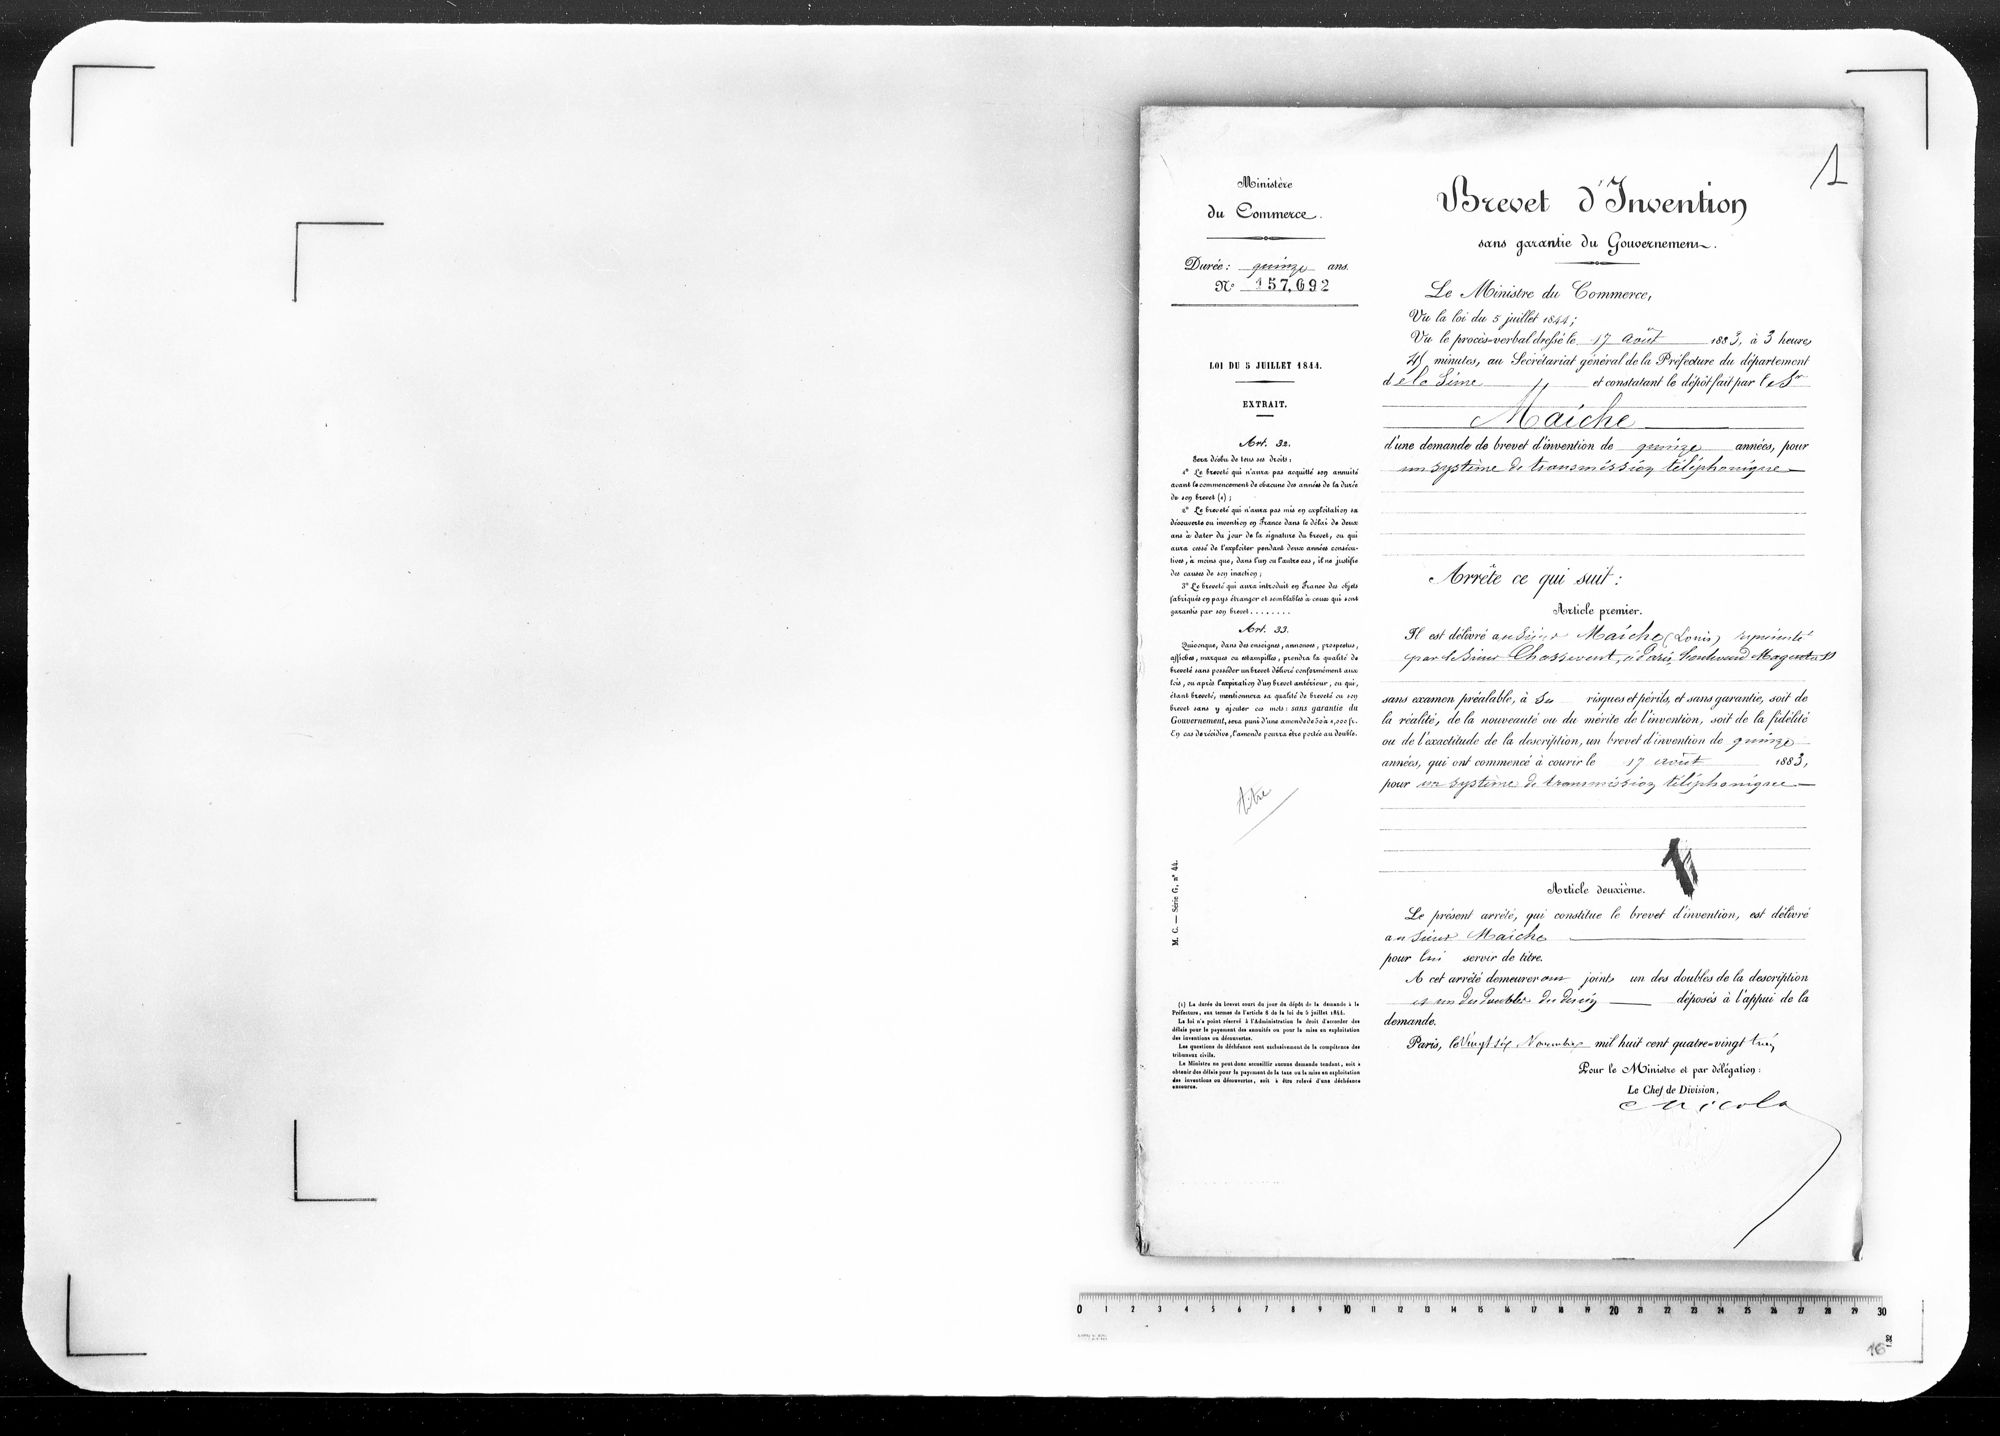 1
Ministère
du Commerce.
Durée : quinze ans.
N° 157,692
LOI DU 5 JUILLET 1844.
EXTRAIT.
Art. 32.
Sera déchu de tous ses droits :
1° Le breveté qui n'aura pas acquitté son annuité
avant le commencement de chacune des années de la durée
de son brevet (1) ;
2° Le breveté qui n'aura pas mis en exploitation sa
découverte ou invention en France dans le délai de deux
ans à dater du jour de la signature du brevet, ou qui
aura cessé de l'exploiter pendant deux années consécu-
tives, à moins que, dans l'un ou l'autre cas, il ne justifie
des causes de son inaction ;
3° Le breveté qui aura introduit en France des objets
fabriqués en pays étranger et semblables à ceux qui sont
garantis par son brevet . . . . . . . .
Art. 33.
Quiconque, dans des enseignes, annonces, prospectus,
affiches, marques ou estampilles, prendra la qualité de
breveté sans posséder un brevet délivré conformément aux
lois, ou après l'expiration d'un brevet antérieur, ou qui,
étant breveté, mentionnera sa qualité de breveté ou son
brevet sans y ajouter ces mots : sans garantie du
Gouvernement, sera puni d'une amende de 50 à 1,000 fr.
En cas de récidive, l'amende pourra être portée au double.
titre
M. C. — Série G, n° 44.
(1) La durée du brevet court du jour du dépôt de la demande à la
Préfecture, aux termes de l'article 8 de la loi du 5 juillet 1844.
La loi n'a point réservé à l'Administration le droit d'accorder des
délais pour le payement des annuités ou pour la mise en exploitation
des inventions ou découvertes.
Les questions de déchéance sont exclusivement de la compétence des
tribunaux civils.
Le Ministre ne peut donc accueillir aucune demande tendant, soit à
obtenir des délais pour le payement de la taxe ou la mise en exploitation
des inventions ou découvertes, soit à être relevé d'une déchéance
encourue.
Brevet d'Invention
sans garantie du Gouvernement.
Le Ministre du Commerce,
Vu la loi du 5 juillet 1844 ;
Vu le procès-verbal dressé le 17 août 1883, à 3 heures
45 minutes, au Secrétariat général de la Préfecture du département
de la Seine et constatant le dépôt fait par le Sr
Maiche
d'une demande de brevet d'invention de quinze années, pour
un système de transmission téléphonique
Arrête ce qui suit :
Article premier.
Il est délivré au Sieur Maiche (Louis) représenté
par le Sieur Chassevent, à Paris, boulevard Magenta
sans examen préalable, à ses risques et périls, et sans garantie, soit de
la réalité, de la nouveauté ou du mérite de l'invention, soit de la fidélité
ou de l'exactitude de la description, un brevet d'invention de quinze
années, qui ont commencé à courir le 17 août 1883,
pour un système de transmission téléphonique
1
Article deuxième.
Le présent arrêté, qui constitue le brevet d'invention, est délivré
au Sieur Maiche
pour lui servir de titre.
A cet arrêté demeureront joints un des doubles de la description
et un des doubles du dessin déposés à l'appui de la
demande.
Paris, le Vingt six Novembre mil huit cent quatre-vingt trois
Pour le Ministre et par délégation :
Le Chef de Division,
0 1 2 3 4 5 6 7 8 9 10 11 12 13 14 15 16 17 18 19 20 21 22 23 24 25 26 27 28 29 30
16